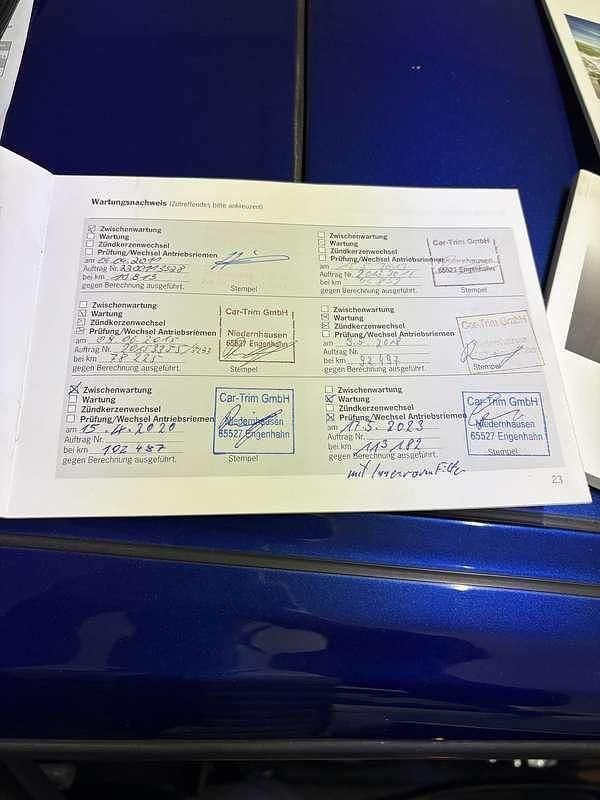 Wartungsnachweis (Zutreffendes bitte ankreuzen)
Zwischenwartung
Wartung
Zündkerzenwechsel
Prüfung/Wechsel Antriebsriemen
am
Auftrag Nr.
bei km 10.813
gegen Berechnung ausgeführt.
Stempel
Zwischenwartung
Wartung
Zündkerzenwechsel
Prüfung/Wechsel Antriebsriemen
am
Auftrag Nr.
bei km
gegen Berechnung ausgeführt.
Car-Trim GmbH
Niedernhausen
65527 Engenhahn
Stempel
Zwischenwartung
Wartung
Zündkerzenwechsel
Prüfung/Wechsel Antriebsriemen
am 09.06.2015
Auftrag Nr.
bei km 78 225
gegen Berechnung ausgeführt.
Car-Trim GmbH
Niedernhausen
65527 Engenhahn
Stempel
Zwischenwartung
Wartung
Zündkerzenwechsel
Prüfung/Wechsel Antriebsriemen
am
Auftrag Nr.
bei km 92 997
gegen Berechnung ausgeführt.
Car-Trim GmbH
65527 Engenhahn
Stempel
Zwischenwartung
Wartung
Zündkerzenwechsel
Prüfung/Wechsel Antriebsriemen
am 15.4.2020
Auftrag Nr.
bei km 102 487
gegen Berechnung ausgeführt.
Car-Trim GmbH
Niedernhausen
65527 Engenhahn
Stempel
Zwischenwartung
Wartung
Zündkerzenwechsel
Prüfung/Wechsel Antriebsriemen
am 17.5.2023
Auftrag Nr.
bei km 113 182
gegen Berechnung ausgeführt.
Car-Trim GmbH
Niedernhausen
65527 Engenhahn
Stempel
mit Innenraumfilter
23